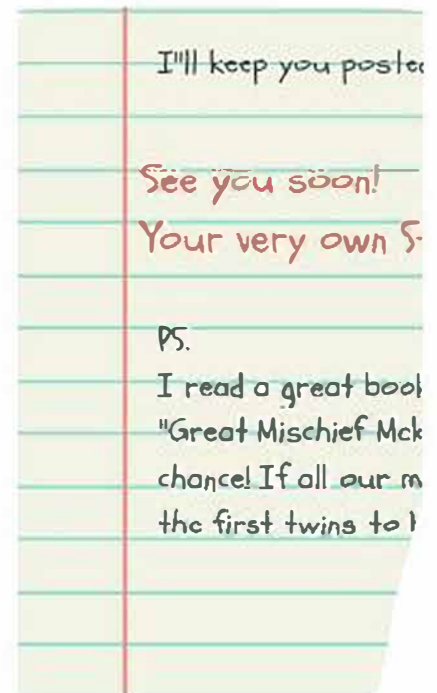 I"ll keep you
See you soon!
Your very own
PS.
I read a great
"Great Mischief
chance! If all our
the first twins to